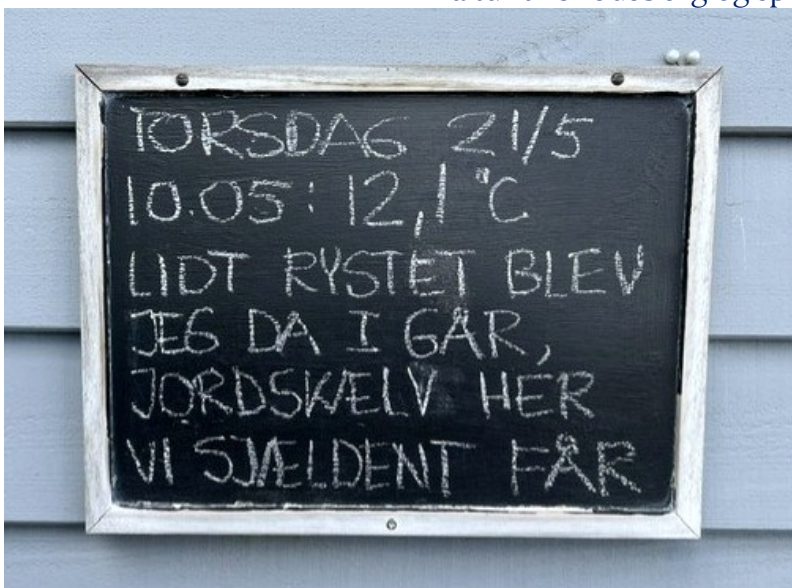 TORSDAG 21/5
10.05: 12,1°C
LIDT RYSTET BLEV
JEG DA I GÅR,
JORDSKÆLV HER
VI SJÆLDENT FÅR